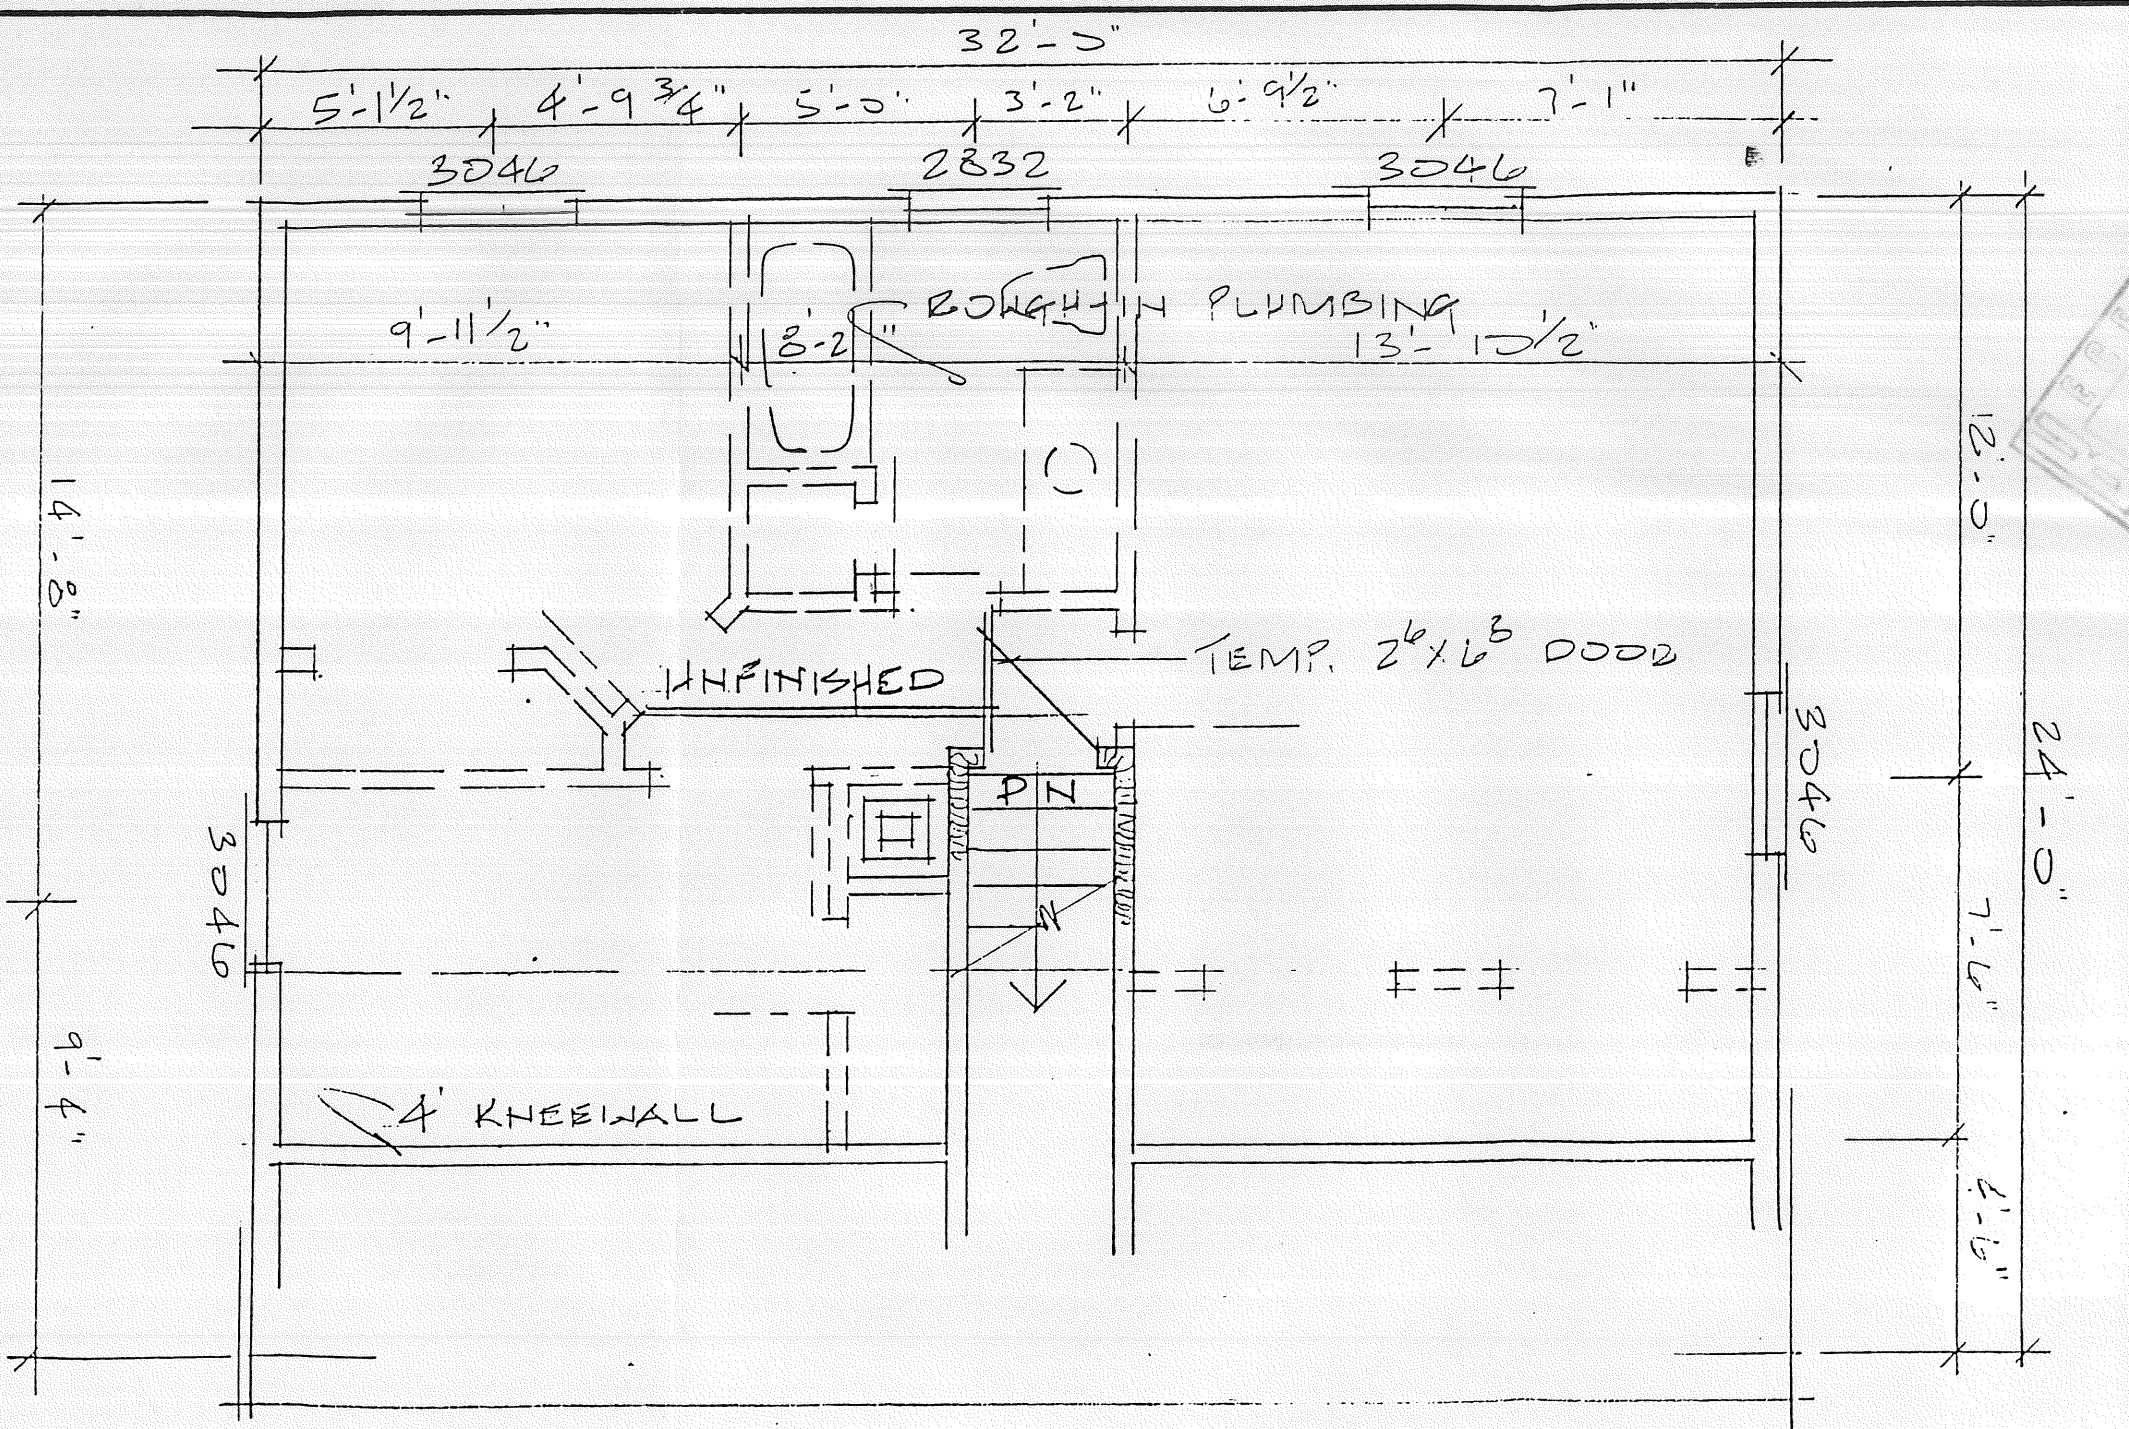 32'-0"
5'-1 1/2" 4'-9 3/4" 5'-0" 3'-2" 6'-9 1/2" 7'-1"
3046 2832 3046
ROUGH-IN PLUMBING
9'-11 1/2" 8'-2" 13'-10 1/2"
12'-0"
14'-8"
TEMP. 2⁶ x 6⁸ DOOR
UNFINISHED
3046
24'-0"
DN
3046
7'-6"
9'-4"
4' KNEEWALL
4'-6"